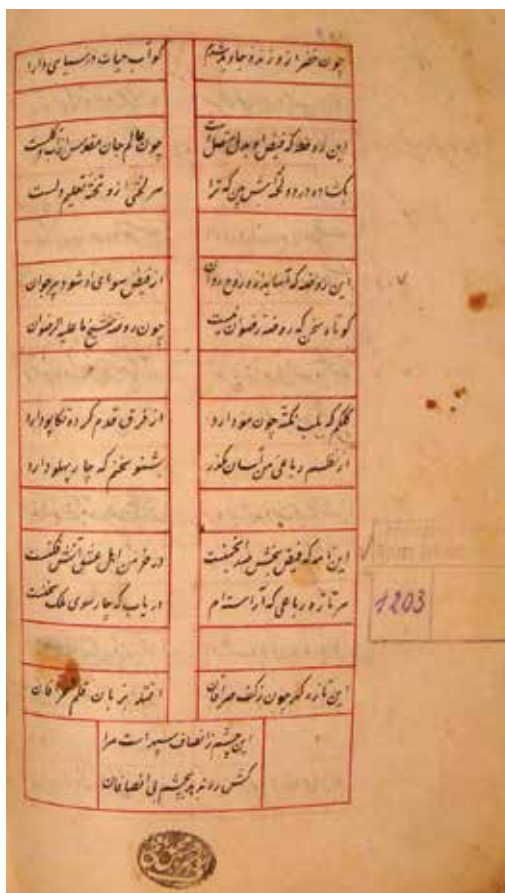 چون خضر ازو زنده جاوید شدم کو آب حیات در سیاهی دارد
این روضه که فیض او بدل متصل است چون عالم جان مقدس از آب و گلست
بگشاده در دو لختیش بین که ترا هر لختی ازو تخته تعلیم دلست
این روضه که آساید ازو روح روان از فیض هوای او شود پیر جوان
کوتاه سخن که روضه رضوان نیست چون روضه شیخ ما علیه الرضوان
کلکم که بلب نکته چون مو دارد از فرق قدم کرده تکاپو دارد
از نظم رباعی من آسان مگذر بشنو سخنم که چار پهلو دارد
این نامه که فیض بخش هر انجمنست در خرمن اهل عشق آتش فکنست
هر تازه رباعی که آراسته‌ام دریاب که چار سوی ملک سخنست
این تازه گهر چون ز کف صرافان افتد بزبان قلم عرافان
این چشم ز انصاف سپهر است مرا
کش روند بچشم بی انصافان
1203